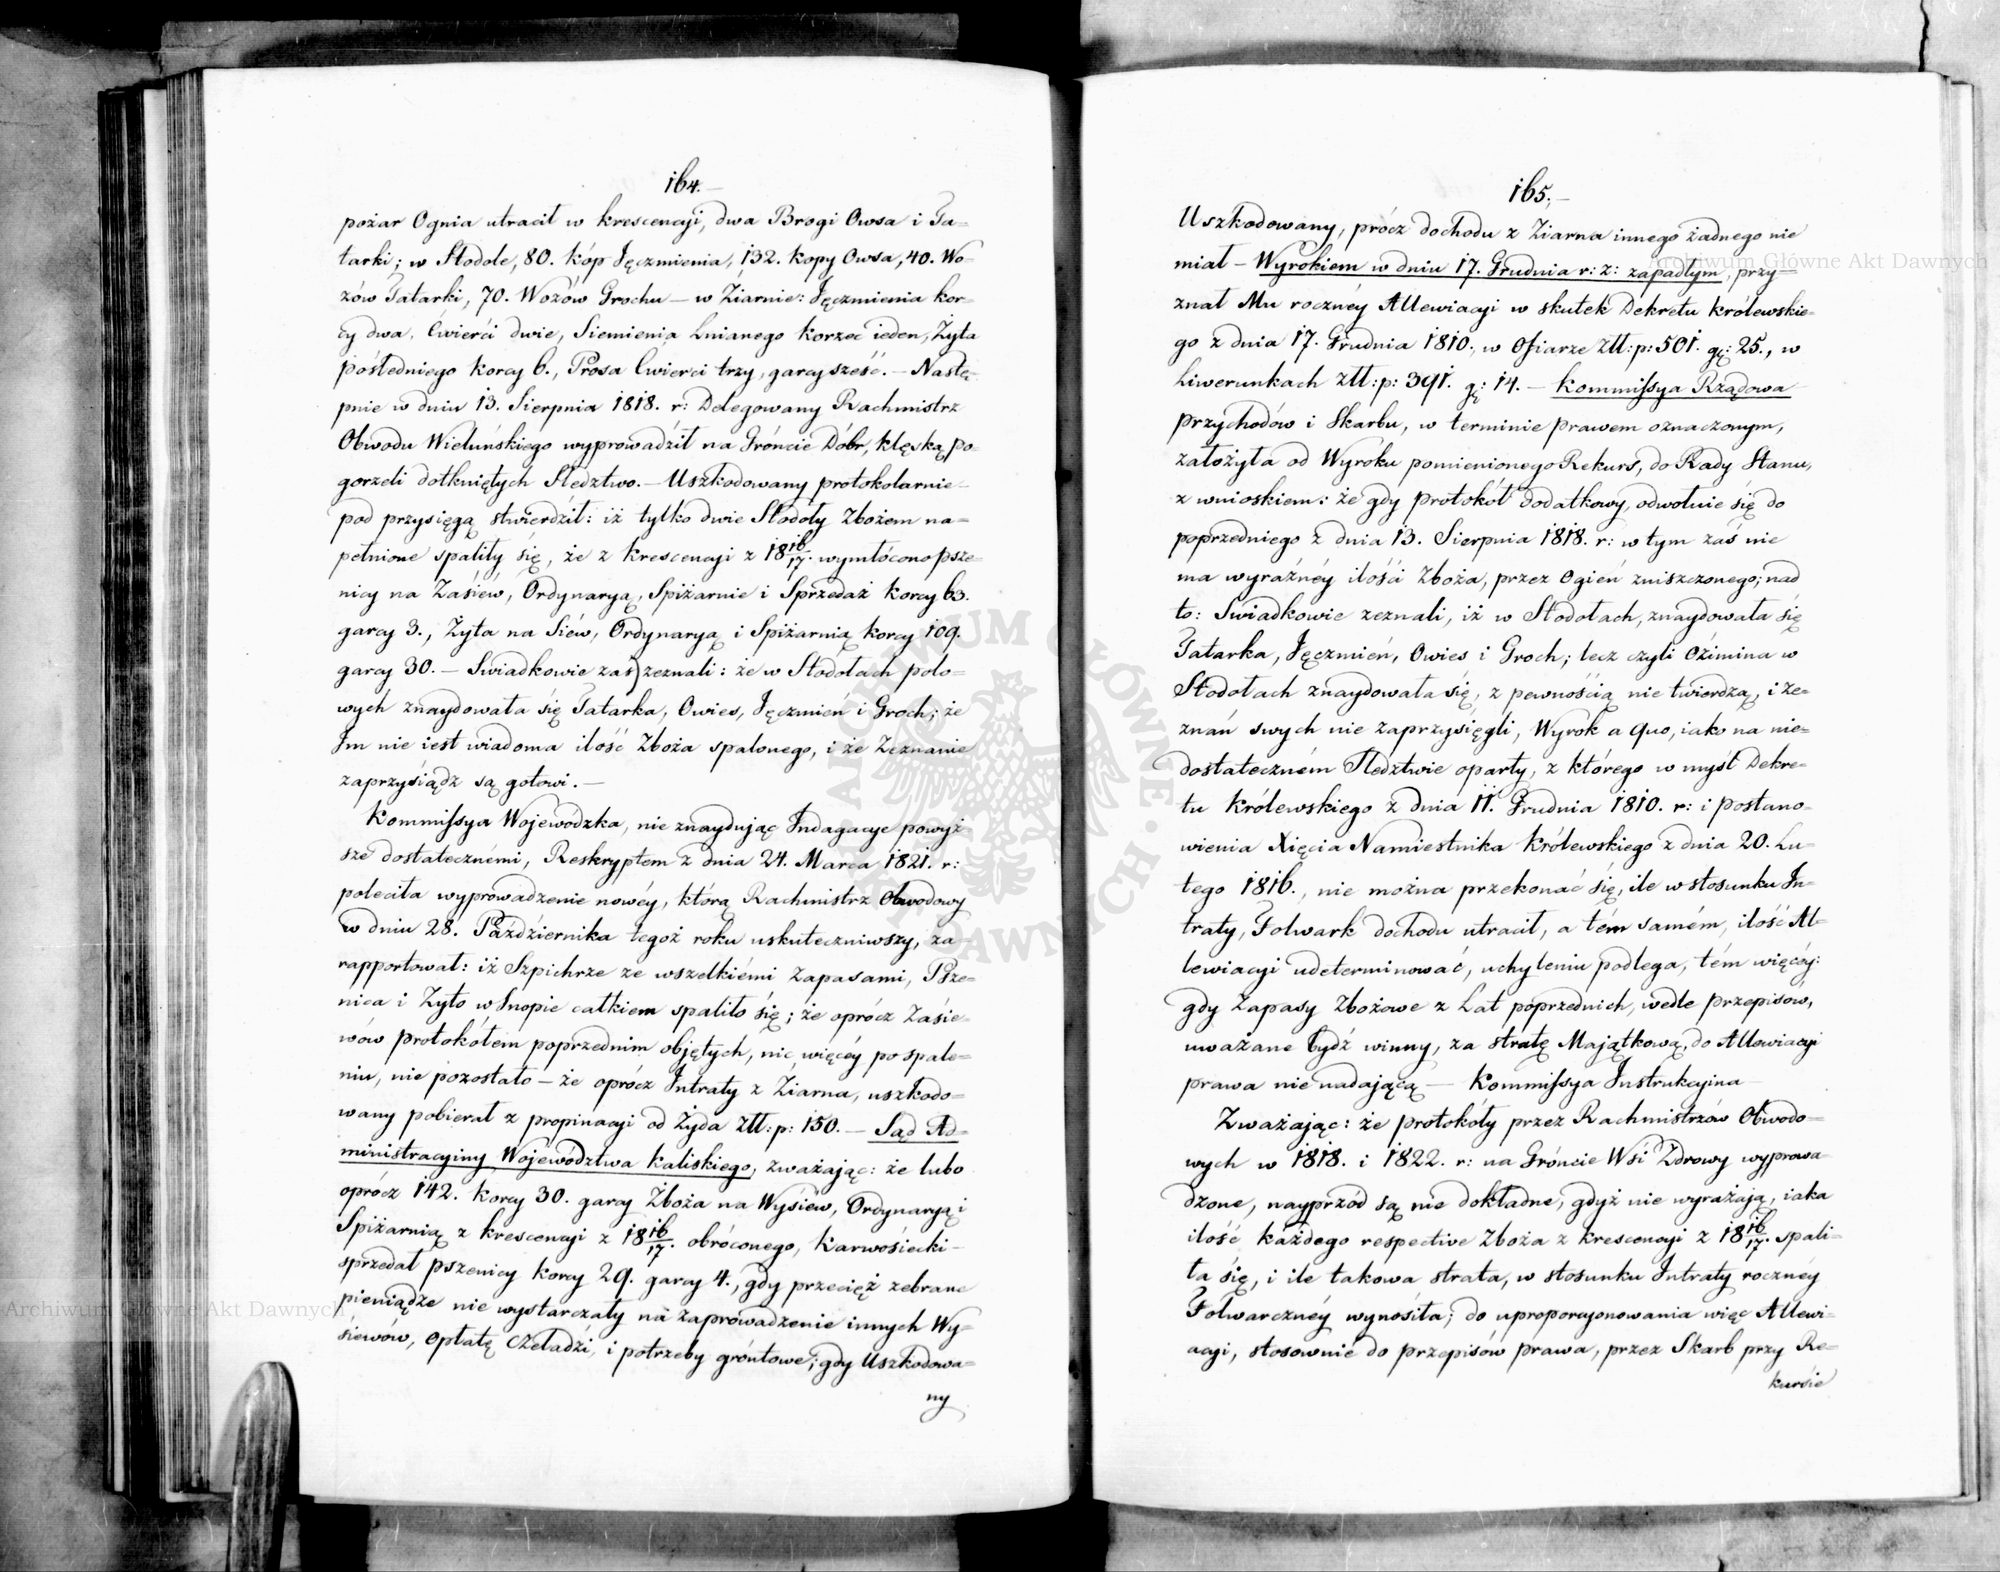 164.
pożar Ognia utracił w krescencyi, dwa Brogi Owsa i Ta=
tarki; w Stodole, 80. kóp Jęczmienia, 132. kopy Owsa, 40. Wo=
zów Tatarki, 70. Wozów Grochu — w Ziarnie: Jęczmienia kor=
cy dwa, Ćwierci dwie, Siemienia Lnianego korzec ieden, Żyta
pośledniego korcy 6., Prosa Cwierci trzy, garcy sześć. — Nastę=
pnie w dniu 13. Sierpnia 1818. r: Delegowany Rachmistrz
Obwodu Wieluńskiego wyprowadził na Gróncie Dóbr, klęską po=
gorzeli dotkniętych Sledztwo. — Uszkodowany protokolarnie
pod przysięgą stwierdził: iż tylko dwie Stodoły Zbożem na=
pełnione spaliły się, że z krescencyi z 1816/17. wymłócono psze=
nicy na Zasiéw, Ordynaryą, Spiżarnie i Sprzedaż korcy 63.
garcy 3., Żyta na Siéw, Ordynaryą i Spiżarnią korcy 109.
garcy 30. — Swiadkowie zaś zeznali: że w Stodołach polo=
wych znaydowała się Tatarka, Owies, Jęczmień i Groch; że
Im nie iest wiadoma ilość Zboża spalonego, i że Zeznanie
zaprzysiądz są gotowi. —
Kommissya Wojewódzka, nie znaydując Indagacye powyż=
sze dostatecznémi, Reskryptem z dnia 24. Marca 1821. r:
poleciła wyprowadzenie nowéy, którą Rachmistrz Obwodowy
w dniu 28. Października tegoż roku uskuteczniwszy, za=
rapportował: iż Szpichrze ze wszelkiémi zapasami, Psze=
nica i Żyto w Snopie całkiem spaliło się; że oprócz Zasie=
wów protokółem poprzednim objętych, nic więcéy po spale=
niu, nie pozostało — że oprócz Intraty z Ziarna, uszkodo=
wany pobierał z propinacyi od Żyda Złł: p: 150. — Sąd Ad=
ministracyiny Województwa Kaliskiego, zważając: że lubo
oprócz 142. korcy 30. garcy Zboża na Wysiew, Ordynaryą i
Spiżarnią z krescencyi z 1816/17. obróconego, Karwosiecki
sprzedał pszenicy korcy 29. garcy 4., gdy przecięż zebrane
pieniądze nie wystarczały na zaprowadzenie innych Wy=
siewów, opłatę czeladzi, i potrzeby gróntowe; gdy Uszkodowa=
ny
165.
Uszkodowany, prócz dochodu z Ziarna innego żadnego nie
miał — Wyrokiem w dniu 17. Grudnia r: z: zapadłym, przy=
znał Mu rocznéy Allewiacyi w skutek Dekretu królewskie=
go z dnia 17. Grudnia 1810., w Ofiarze złł: p: 501. gr: 25., w
Liwerunkach złł: p: 391. gr: 14. — Kommissya Rządowa
przychodów i Skarbu, w terminie prawem oznaczonym,
założyła od Wyróku pomienionego Rekurs, do Rady Stanu,
z wnioskiem: że gdy protokół dodatkowy, odwołuie się do
poprzedniego z dnia 13. Sierpnia 1818. r: w tym zaś nie
ma wyraźnéy ilości Zboża, przez Ogień zniszczonego; nad
to: Swiadkowie zeznali, iż w Stodołach, znaydowała się
Tatarka, Jęczmień, Owies i Groch; lecz czyli Oźimina w
Stodołach znaydowała się, z pewnością nie twierdzą, i ze=
znań swych nie zaprzysięgli, Wyrok a quo, iako na nie=
dostateczném Sledztwie oparty, z którego w myśl Dekre=
tu Królewskiego z dnia 11. Grudnia 1810. r: i postano=
wienia Xięcia Namiestnika Królewskiego z dnia 20. Lu=
tego 1816., nie można przekonać się, ile w stosunku In=
traty, Folwark dochodu utracił, a tém samém, ilość Al=
lewiacyi udeterminować, uchyleniu podlega, tém więcéy:
gdy Zapasy Zbożowe z Lat poprzednich, wedle przepisów,
uważane bydź winny, za stratę Majątkową, do Allewiacyi
prawa nie nadającą — Kommissya Instrukcyina
Zważając: że protokóły przez Rachmistrzów Obwodo=
wych w 1818. i 1822. r: na Gróncie Wsi Zdrowy wyprowa=
dzone, nayprzód są nie dokładne, gdyż nie wyrażają, iaka
ilość każdego respective Zboża z krescencyi z 1816/17. spali=
ła się, i ile takowa strata, w stosunku Intraty rocznéy
Folwarcznéy wynosiła; do uproporcyonowania więc Allewi=
acyi, stosownie do przepisów prawa, przez Skarb przy Re=
kursie
Archiwum Główne Akt Dawnych
Archiwum Główne Akt Dawnych
ARCHIWUM GŁÓWNE AKT DAWNYCH